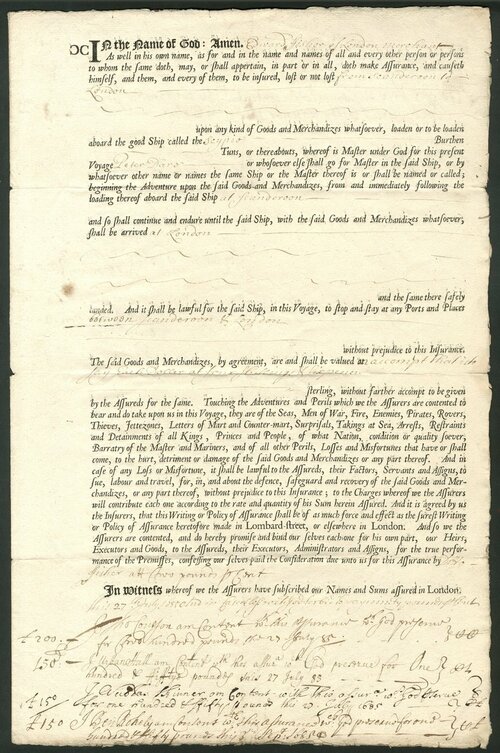 IN the Name of God: Amen. of London merchant
As well in his own name, as for and in the name and names of all and every other person or persons
to whom the same doth, may, or shall appertain, in part or in all, doth make Assurance, and causeth
himself, and them, and every of them, to be insured, lost or not lost from Scanderoon to
London
upon any kind of Goods and Merchandizes whatsoever, loaden or to be loaden
aboard the good Ship called the Scipio Burthen
Tuns, or thereabouts, whereof is Master under God for this present
Voyage Peter or whosoever else shall go for Master in the said Ship, or by
whatsoever other name or names the same Ship or the Master thereof is or shall be named or called;
beginning the Adventure upon the said Goods and Merchandizes, from and immediately following the
loading thereof aboard the said Ship at Scanderoon
and so shall continue and endure until the said Ship, with the said Goods and Merchandizes whatsoever,
shall be arrived at London
and the same there safely
landed. And it shall be lawful for the said Ship, in this Voyage, to stop and stay at any Ports and Places
between Scanderoon & London
without prejudice to this Insurance.
The said Goods and Merchandizes, by agreement, are and shall be valued at
sterling, without farther accompt to be given
by the Assureds for the same. Touching the Adventures and Perils which we the Assurers are contented to
bear and do take upon us in this Voyage, they are of the Seas, Men of War, Fire, Enemies, Pirates, Rovers,
Thieves, Jettezones, Letters of Mart and Counter-mart, Surprisals, Takings at Sea, Arrests, Restraints
and Detainments of all Kings, Princes and People, of what Nation, condition or quality soever,
Barratry of the Master and Mariners, and of all other Perils, Losses and Misfortunes that have or shall
come, to the hurt, detriment or damage of the said Goods and Merchandizes or any part thereof. And in
case of any Loss or Misfortune, it shall be lawful to the Assureds, their Factors, Servants and Assigns, to
sue, labour and travel, for, in, and about the defence, safeguard and recovery of the said Goods and Mer-
chandizes, or any part thereof, without prejudice to this Insurance; to the Charges whereof we the Assurers
will contribute each one according to the rate and quantity of his Sum herein Assured. And it is agreed by us
the Insurers, that this Writing or Policy of Assurance shall be of as much force and effect as the surest Writing
or Policy of Assurance heretofore made in Lombard-street, or elsewhere in London. And so we the
Assurers are contented, and do hereby promise and bind our selves each one for his own part, our Heirs,
Executors and Goods, to the Assureds, their Executors, Administrators and Assigns, for the true perfor-
mance of the Premisses, confessing our selves paid the Consideration due unto us for this Assurance by
pounds
In Witness whereof we the Assurers have subscribed our Names and Sums assured in London.
£ 200 am Content with this Assurance God preserve
for two hundred pounds the 27 July 85
150 am Content with this God preserve for One
hundred & fiftye pounds this 27 July 85
£ 150 Skinner am Content with this
for one hundred & fifty pounds this 27 July 1685
£ 150 content with this assurance God preserve for one
hundred & fifty pounds